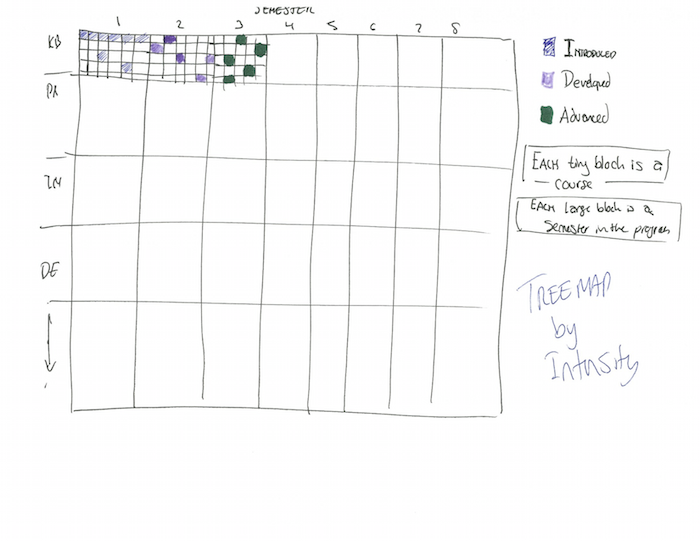 SEMESTER
1 2 3 4 5 6 7 8
KB
PA
IN
DE
INTRODUCED
Developed
Advanced
EACH tiny block is a
course
EACH large block is a
semester in the program
TREEMAP
by
Intensity